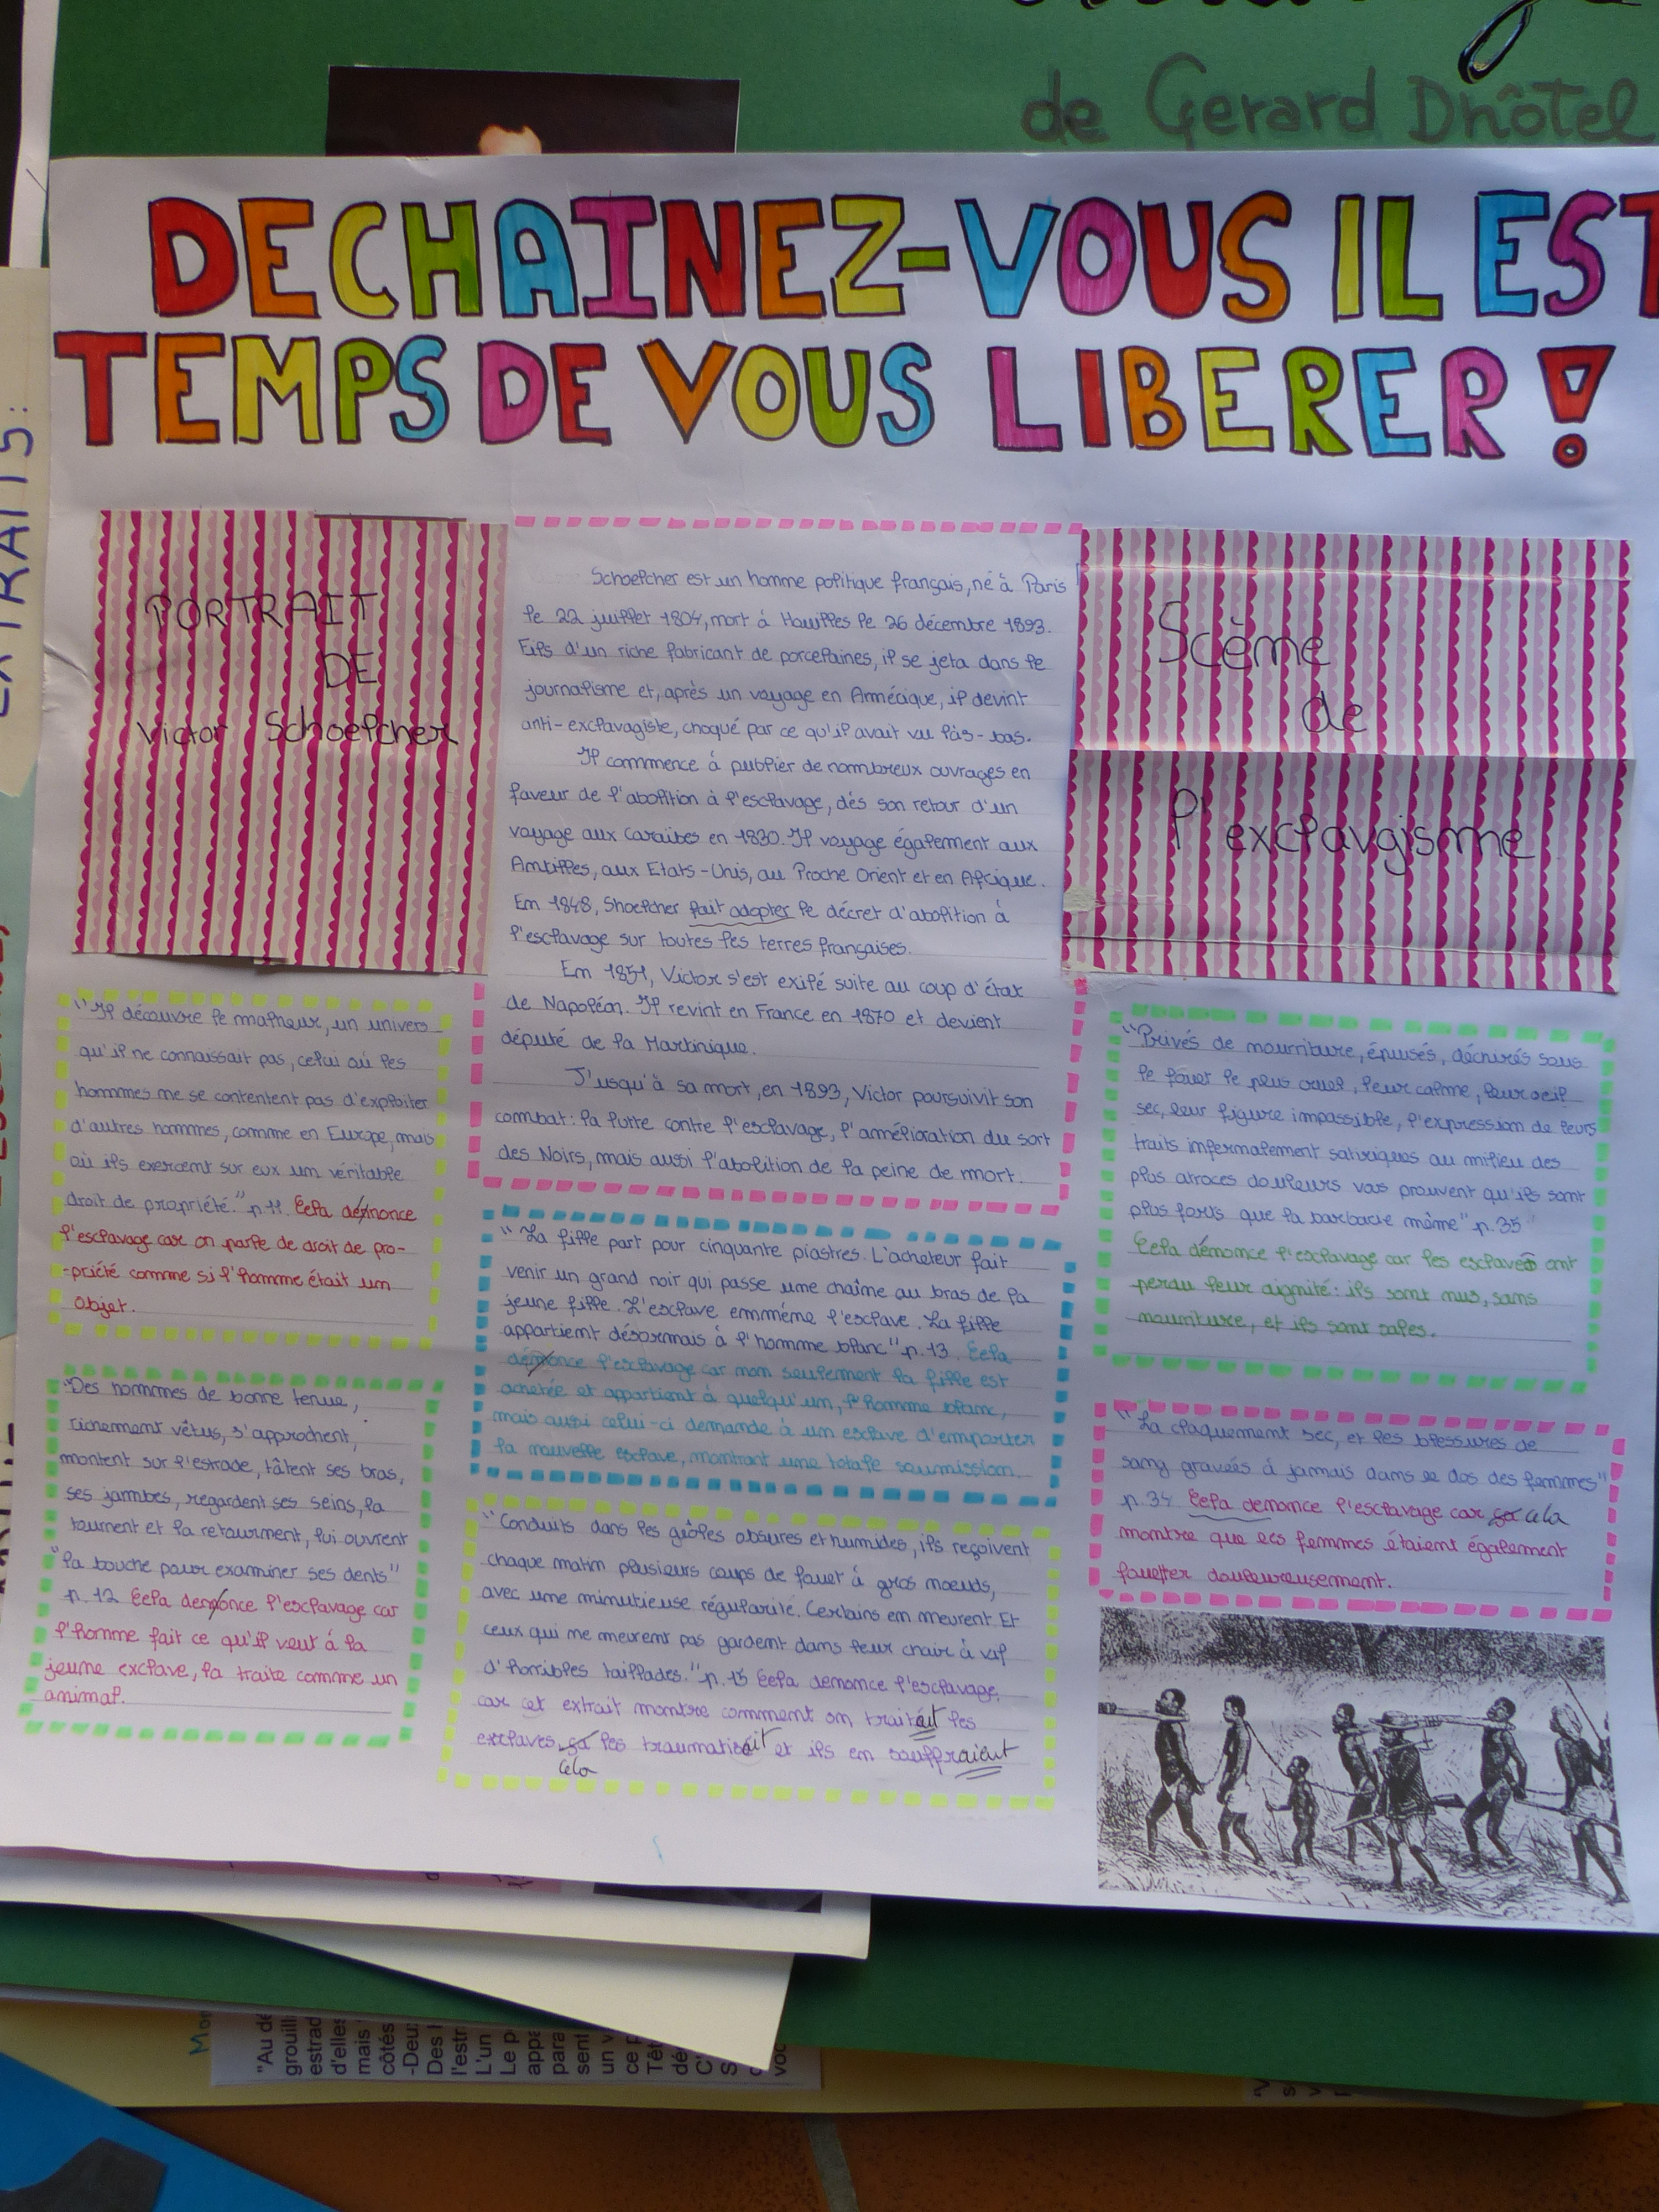 de Gerard Dhôtel
DECHAINEZ-VOUS IL EST
TEMPS DE VOUS LIBERER !
PORTRAIT
DE
Victor Schoelcher
Schoelcher est un homme politique français, né à Paris
le 22 juillet 1804, mort à Houilles le 26 décembre 1893.
Fils d'un riche fabricant de porcelaines, il se jeta dans le
journalisme et, après un voyage en Amérique, il devint
anti-exclavagiste, choqué par ce qu'il avait vu làs-bas.
Il commence à publier de nombreux ouvrages en
faveur de l'abolition à l'esclavage, dés son retour d'un
voyage aux Caraïbes en 1830. Il voyage également aux
Antilles, aux Etats-Unis, au Proche Orient et en Afrique.
En 1848, Shoelcher fait adopter le décret d'abolition à
l'esclavage sur toutes les terres françaises.
En 1851, Victor s'est exilé suite au coup d'état
de Napoléon. Il revint en France en 1870 et devient
député de la Martinique.
J'usqu'à sa mort, en 1893, Victor poursuivit son
combat: la lutte contre l'esclavage, l'amélioration du sort
des Noirs, mais aussi l'abolition de la peine de mort.
Scème
de
l'exclavgisme
"Il découvre le malheur, un univers
qu'il ne connaissait pas, celui où les
hommes me se contentent pas d'exploiter
d'autres hommes, comme en Europe, mais
où ils exercent sur eux un véritable
droit de propriété." p 11. Cela dénonce
l'esclavage car on parle de droit de pro-
-priété comme si l'homme était un
objet.
"Des hommes de bonne tenue,
richement vêtus, s'approchent,
montent sur l'estrade, tâtent ses bras,
ses jambes, regardent ses seins, la
tournent et la retournent, lui ouvrent
"la bouche pour examiner ses dents"
p. 12 Cela denonce l'esclavage car
l'homme fait ce qu'il veut à la
jeune exclave, la traite comme un
animal.
"La fille part pour cinquante piastres. L'acheteur fait
venir un grand noir qui passe une chaîne au bras de la
jeune fille. L'esclave emméne l'esclave. La fille
appartient désormais à l'homme blanc" p. 13. Cela
dénonce l'esclavage car non seulement la fille est
achetée et appartient à quelqu'un, l'homme blanc,
mais aussi celui-ci demande à un esclave d'emporter
la nouvelle esclave, montrant une totale soumission.
"Conduits dans les geôles obsures et humides, ils reçoivent
chaque matin plusieurs coups de fouet à gros noeuds,
avec une minutieuse régularité. Certains en meurent. Et
ceux qui me meurent pas gardent dans leur chair à vif
d'horribles taillades." p. 15 Cela denonce l'esclavage,
car cet extrait montre comment on traitait les
exclaves, ça les traumatisait et ils en souffraient
cela
"Privés de nourriture, épuisés, déchirés sous
le fouet le plus cruel, leur calme, leur oeil
sec, leur figure impassible, l'expression de leurs
traits infernalement satyriques au milieu des
plus atroces douleurs vous prouvent qu'ils sont
plus forts que la barbarie même" p. 35
Cela dénonce l'esclavage car les esclaves ont
perdu leur dignité: ils sont nus, sans
nourriture, et ils sont sales.
"La claquement sec, et les blessures de
sang gravées à jamais dans le dos des femmes"
p. 34 Cela denonce l'esclavage car ça cela
montre que les femmes étaient également
fouetter douloureusement.
EXTRAITS:
"Au dé
grouill
estrad
d'elles
mais
côtés
-Deux
Des
l'estr
L'un
Le p
appa
para
sent
un v
ce p
Têt
dé